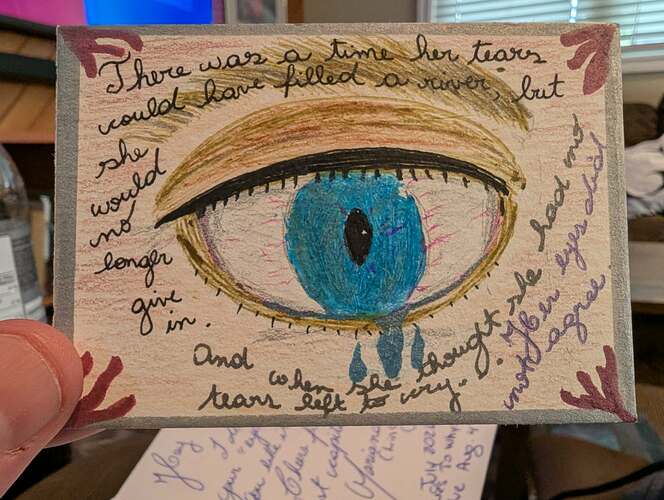 There was a time her tears
would have filled a river, but
she
would
no
longer
give
in.
And when she thought she had no
tears left to cry...
Her eyes did
not agree.
Hey
your
Clara
JULY 202
Aug. 4